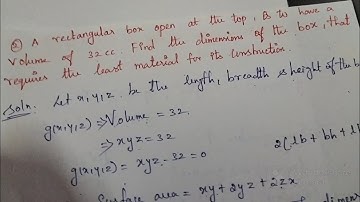 ② A rectangular box open at the top, is to have a
volume of 32 cc. Find the dimensions of the box, that
requires the least material for its construction.
Soln. Let x, y, z be the length, breadth & height of the b
g(x,y,z) => Volume = 32.
=> xyz = 32
g(x,y,z) = xyz - 32 = 0
2[lb + bh + l
Surface area = xy + 2yz + 2zx
of dimen